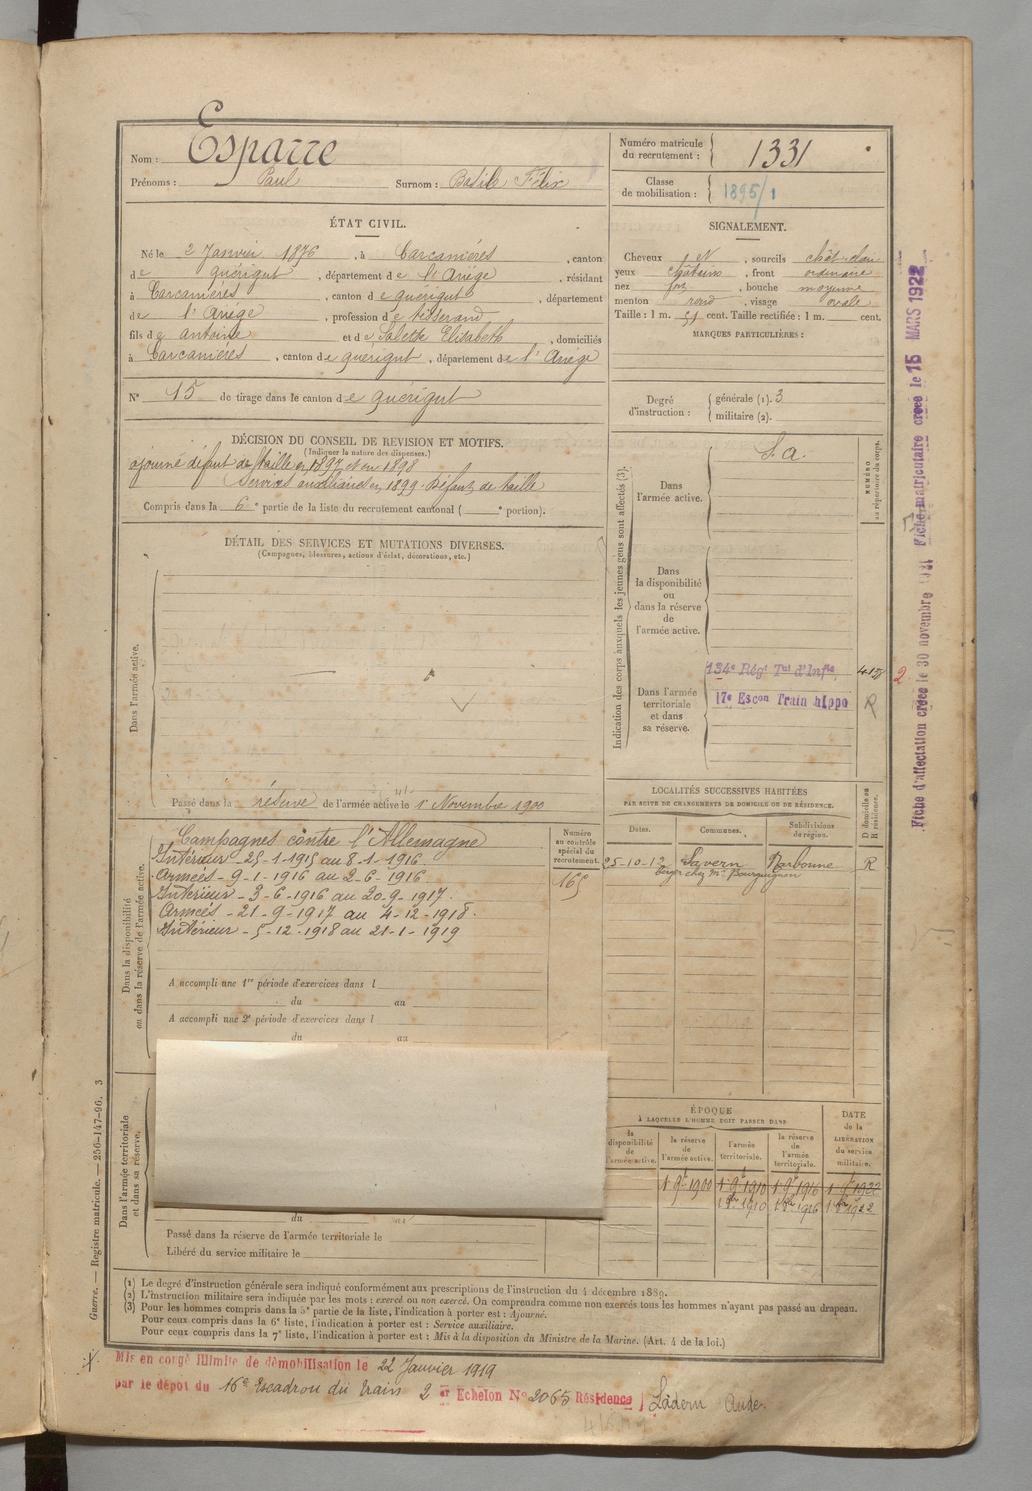 Nom : Esparre
Prénoms : Paul Surnom : Basile Félix
Numéro matricule du recrutement : 1331
Classe de mobilisation : 1895/1
ÉTAT CIVIL.
Né le 2 Janvier 1876, à Carcaniéres, canton
de quérigut, département de l'Ariége, résidant
à Carcaniéres, canton de quérigut, département
de l'Ariége, profession de tisserand
fils de antoine et de Salette Elisabeth, domiciliés
à Carcaniéres, canton de quérigut, département de l'Ariége
N° 15 de tirage dans le canton de quérigut
SIGNALEMENT.
Cheveux N, sourcils chât-clair
yeux châtains, front ordinaire
nez fort, bouche moyenne
menton rond, visage ovale
Taille : 1 m. 51 cent. Taille rectifiée : 1 m. cent.
MARQUES PARTICULIÈRES :
Degré d'instruction : générale (1). 3
militaire (2).
DÉCISION DU CONSEIL DE REVISION ET MOTIFS.
(Indiquer la nature des dispenses.)
ajourné défaut de taille en 1897 et en 1898
Services auxiliaires en 1899. Défaut de taille
Compris dans la 6e partie de la liste du recrutement cantonal ( e portion).
DÉTAIL DES SERVICES ET MUTATIONS DIVERSES.
(Campagnes, blessures, actions d'éclat, décorations, etc.)
Dans l'armée active.
Passé dans la réserve de l'armée active le 1er Novembre 1900
Indication des corps auxquels les jeunes gens sont affectés (3).
NUMÉRO au répertoire du corps.
Dans l'armée active.
S. a.
Dans la disponibilité ou dans la réserve de l'armée active.
Dans l'armée territoriale et dans sa réserve.
134e Régt Tal d'Infie
17e Escon Train hippo
R
2
LOCALITÉS SUCCESSIVES HABITÉES
PAR SUITE DE CHANGEMENTS DE DOMICILE OU DE RÉSIDENCE.
Dates. Communes. Subdivisions de région. D domicile ou R résidence.
25-10-12 Lavern Narbonne R
berger chez Mr Bourguignon
Dans la disponibilité ou dans la réserve de l'armée active.
Numéro au contrôle spécial du recrutement.
165
Campagnes contre l'Allemagne
Intérieur - 25-1-1915 au 8-1-1916
Armées - 9-1-1916 au 2-6-1916
Intérieur - 3-6-1916 au 20-9-1917.
Armées - 21-9-1917 au 4-12-1918.
Intérieur - 5-12-1918 au 21-1-1919
A accompli une 1re période d'exercices dans l
du au
A accompli une 2e période d'exercices dans l
du au
Dans l'armée territoriale et dans sa réserve.
du au
Passé dans la réserve de l'armée territoriale le
Libéré du service militaire le
ÉPOQUE
À LAQUELLE L'HOMME DOIT PASSER DANS
la disponibilité de l'armée active. la réserve de l'armée active. l'armée territoriale. la réserve de l'armée territoriale. DATE de la LIBÉRATION du service militaire.
1 9bre 1900 1 9bre 1910 1 9bre 1916 1 9bre 1922
1 8bre 1910 1 8bre 1916 1 8bre 1922
(1) Le degré d'instruction générale sera indiqué conformément aux prescriptions de l'instruction du 4 décembre 1889.
(2) L'instruction militaire sera indiquée par les mots : exercé ou non exercé. On comprendra comme non exercés tous les hommes n'ayant pas passé au drapeau.
(3) Pour les hommes compris dans la 5e partie de la liste, l'indication à porter est : Ajourné.
Pour ceux compris dans la 6e liste, l'indication à porter est : Service auxiliaire.
Pour ceux compris dans la 7e liste, l'indication à porter est : Mis à la disposition du Ministre de la Marine. (Art. 4 de la loi.)
Mis en congé illimité de démobilisation le 22 Janvier 1919
par le dépôt du 16e Escadron du train 2 er Echelon N° 2065 Résidence Ladern Aude.
Guerre. — Registre matricule. — 256-147-96. 3
Fiche d'affectation créée le 30 novembre 1921 Fiche matriculaire créée le 15 MARS 1922